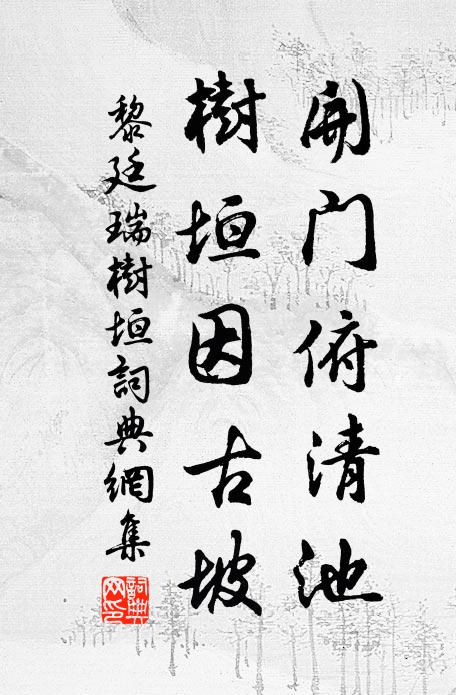 開门俯清池
樹垣因古坡
黎廷瑞樹垣詞典網集
詞典
网印